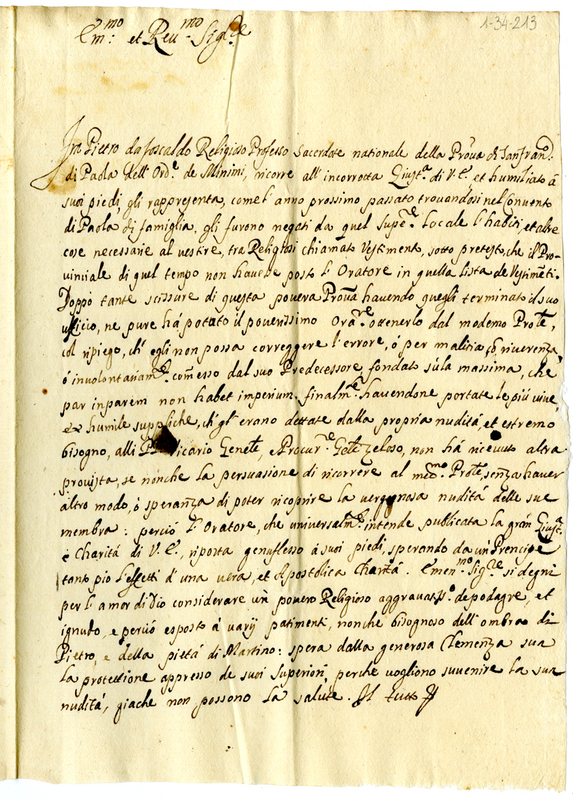 1-34-213
Em.mo et Reu.mo Sig.re
Fra Pietro da foscaldo Religioso Professo Sacerdote nationale della Prou.a di San fran.o
di Paola dell'Ord.e de Minimi, ricorre all'incorrotta Giust.a di V.E. et humiliato à
suoi piedi gli rappresenta, come l'anno prossimo passato trouandosi nel Conuento
di Paola di famiglia, gli furono negati da quel Supe.re Locale l'habiti, et altre
cose necessarie al vestire, tra Religiosi chiamato Vestimento, sotto pretesto, che il Pro-
uinciale di quel tempo non hauesse posto l'Oratore in quella lista de Vestimēti.
Doppò tante scissure di questa pouera Prou.a hauendo quegli terminato il suo
ufficio, ne pure hà potuto il pouerissimo Ora.re ottenerlo dal moderno Pro.le,
col ripiego, ch'egli non possa correggere l'errore, ó per malitia, ò riuerenza
ó inuolontariam.te com̄esso dal suo Predecessore, fondato sù la massima, che
par in parem non habet imperium. finalm.te hauendone portate le più viue
et humile suppliche, ch'gl'erano dettate dalla propria nudità, et estremo
bisogno, alli Vicario Gene.le, e Procur.re Ge.le Zeloso, non hà riceuuto altra
prouista, se nonche la persuasione di ricorrere al med.mo Pro.le, senza hauer
altro modo, ò speranza di poter ricoprire la vergognosa nudità delle sue
membra: perciò l'Oratore, che uniuersalm.te intende publicata la gran Giust.a
e Charità di V.E., riposta genuflesso à suoi piedi, sperando da un Prencipe
tanto pio l'effetti d'una vera, et Apostolica Charità. Emen.mo Sig.re si degni
per l'amor di Dio considerare un pouero Religioso aggrauatis.o de podagre, et
ignudo, e perciò esposto à varij patimenti, nonche bisognoso dell'ombra di
Pietro, e della pietà di Martino: spera dalla generosa Clemenza sua
la protettione appresso de suoi Superiori, perche vogliono suuenire la sua
nudità, giache non possono la salute. Il tutto